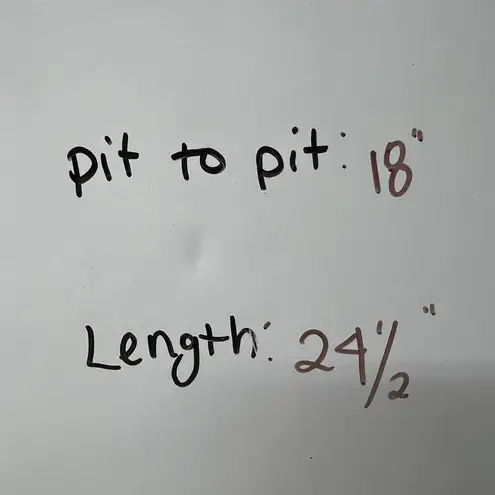 pit to pit: 18"
Length: 24 1/2"